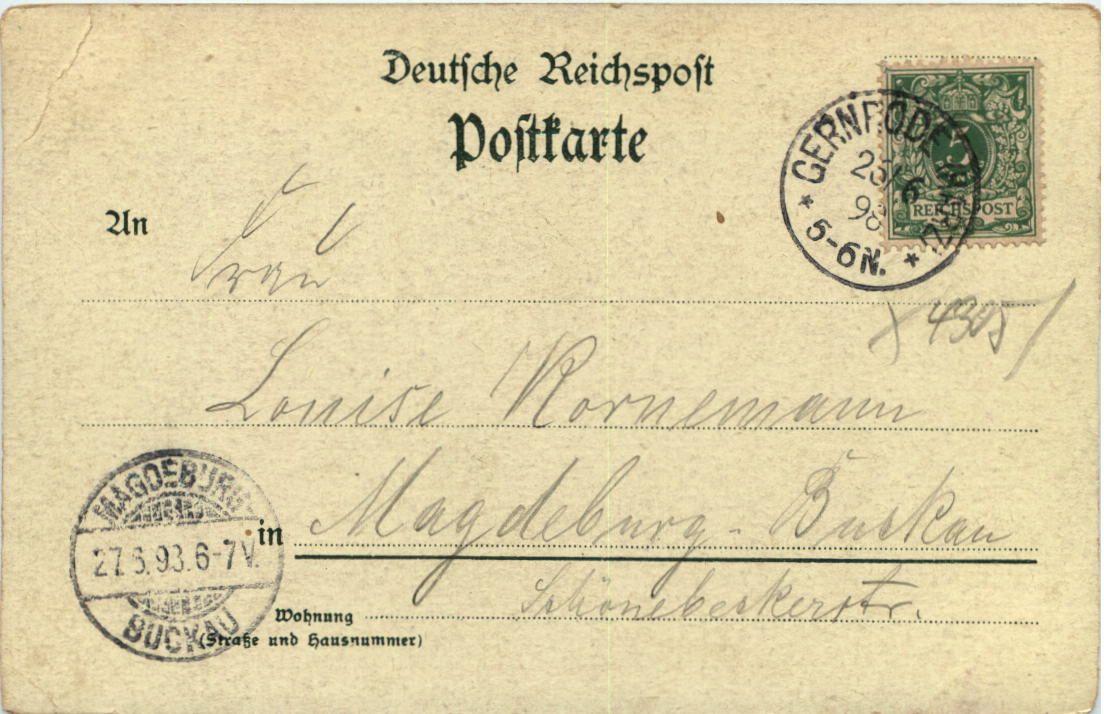 Deutsche Reichspost
Postkarte
GERNRODE (HARZ)
26/6
98
5-6N.
REICHSPOST
An
Frau
4305
Louise Kornemann
in Magdeburg-Buckau
Schönebeckerstr.
Wohnung
(Straße und Hausnummer)
MAGDEBURG
27.6.98.6-7V.
BUCKAU